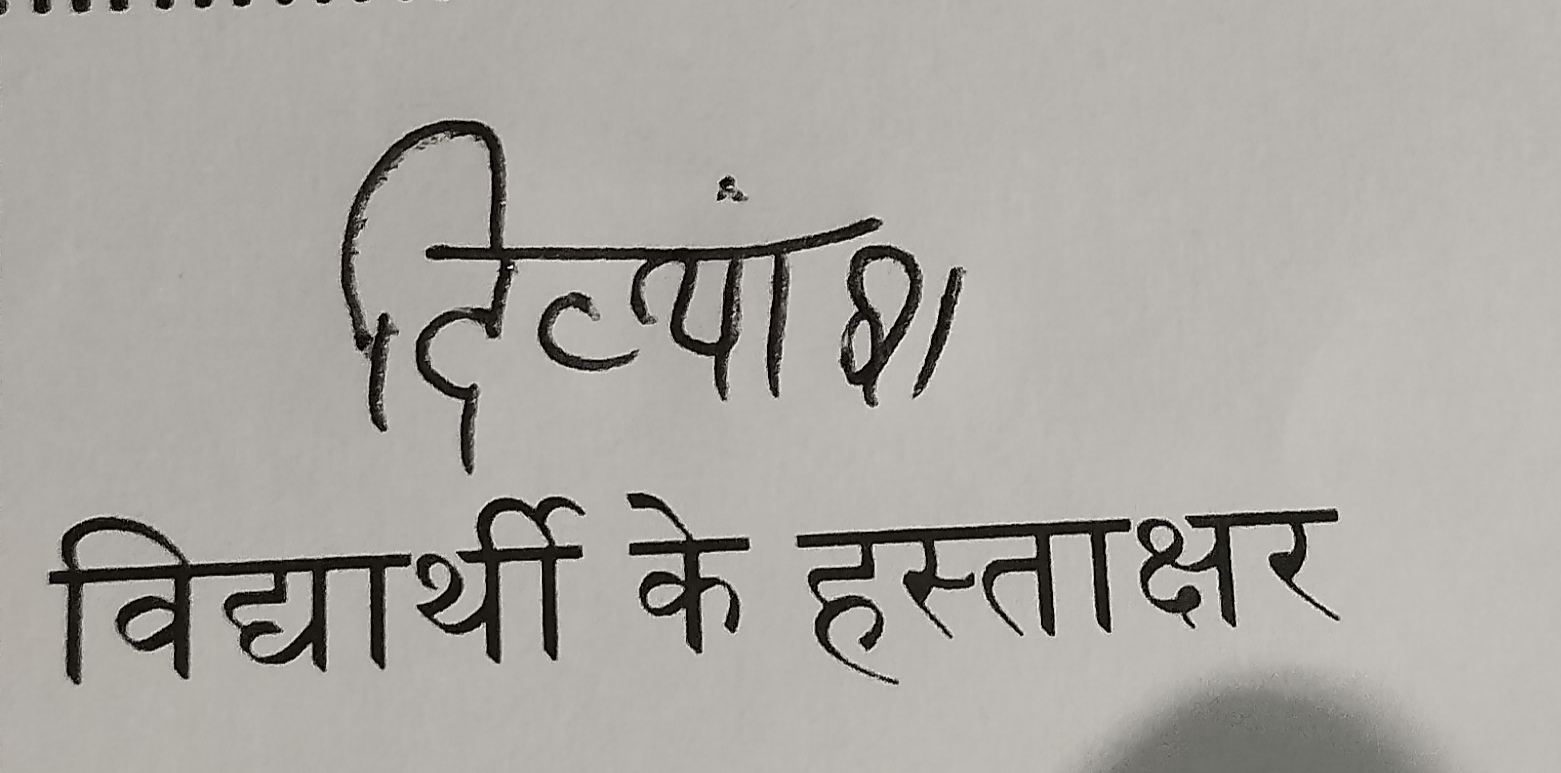 दिव्यांश
विद्यार्थी के हस्ताक्षर